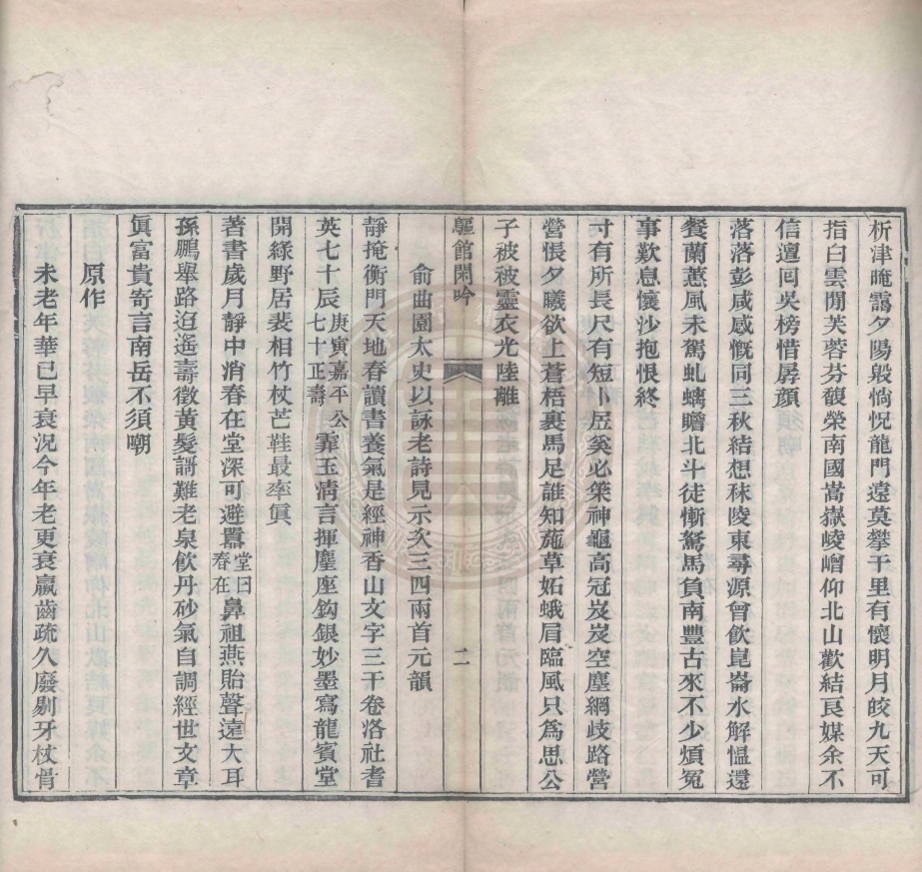 析津晻靄夕陽殷惝怳龍門遠莫攀千里有懷明月皎九天可
指白雲閒芙蓉芬馥榮南國嵩嶽崚嶒仰北山歡結良媒余不
信邅囘吳榜惜孱顔
落落彭咸感慨同三秋結想秣陵東尋源曾飲崑崙水解慍還
餐蘭蕙風未駕虬螭瞻北斗徒慚駑馬負南豐古來不少煩冤
事歎息懷沙抱恨終
寸有所長尺有短小居奚必策神龜高冠岌岌空塵網歧路營
營悵夕曦欲上蒼梧裹馬足誰知葹草妬蛾眉臨風只爲思公
子被被靈衣光陸離
驅館閑吟 二
俞曲園太史以詠老詩見示次三四兩首元韻
靜掩衡門天地春讀書養氣是經神香山文字三千卷洛社耆
英七十辰庚寅嘉平公七十正壽霏玉淸言揮麈座鈎銀妙墨寫龍賓堂
開綠野居裴相竹杖芒鞋最率眞
著書歲月靜中消春在堂深可避囂堂曰春在鼻祖燕貽聲遠大耳
孫鵬舉路迢遙壽徵黃髮謌難老泉飮丹砂氣自調經世文章
眞富貴寄言南岳不須嘲
原作
未老年華已早衰況今年老更衰羸齒疏久廢剔牙杖骨